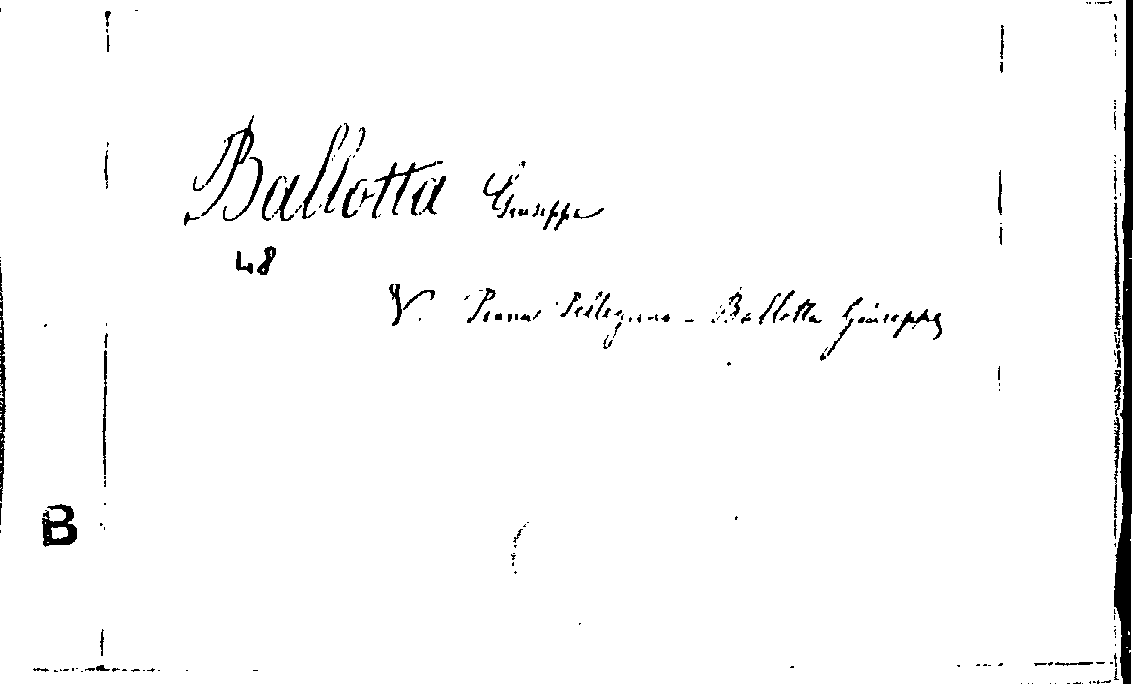 Ballotta Giuseppe
48
V. Penna Pellegrino - Ballotta Giuseppe
B